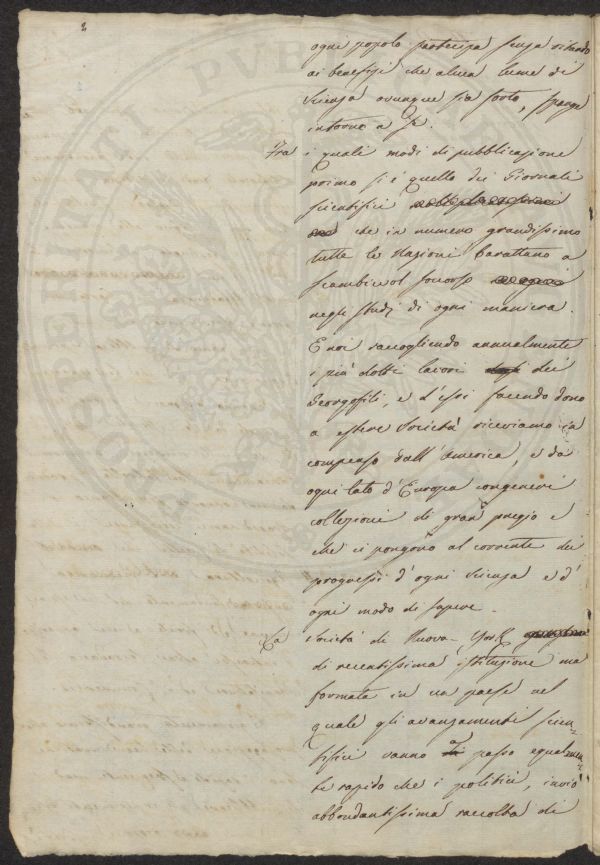 2
ogni popolo partecipa senza ritardo
ai benefizj che alcun lume di
scienza ovunque sia sorto, sparge
intorno a se.
Fra i quali modi di pubblicazione
primo si è quello dei Giornali
scientifici
che in numero grandissimo
tutte le Nazioni barattano a
scambievol soccorso
negli studj di ogni maniera.
E noi raccogliendo annualmente
i più dotti lavori dei
Georgofili, e d'essi facendo dono
a estere Società riceviamo in
compenso dall'America, e da
ogni lato d'Europa congeneri
collezioni di gran pregio e
che ci pongono al corrente dei
progressi d'ogni scienza e d'
ogni modo di sapere.
La Società di Nuova-York
di recentissima istituzione ma
formata in un paese nel
quale gli avanzamenti scien-
tifici vanno a passo egualmen-
te rapido che i politici, inviò
abbondantissima raccolta di
PROSPERITATI PUBLICAE